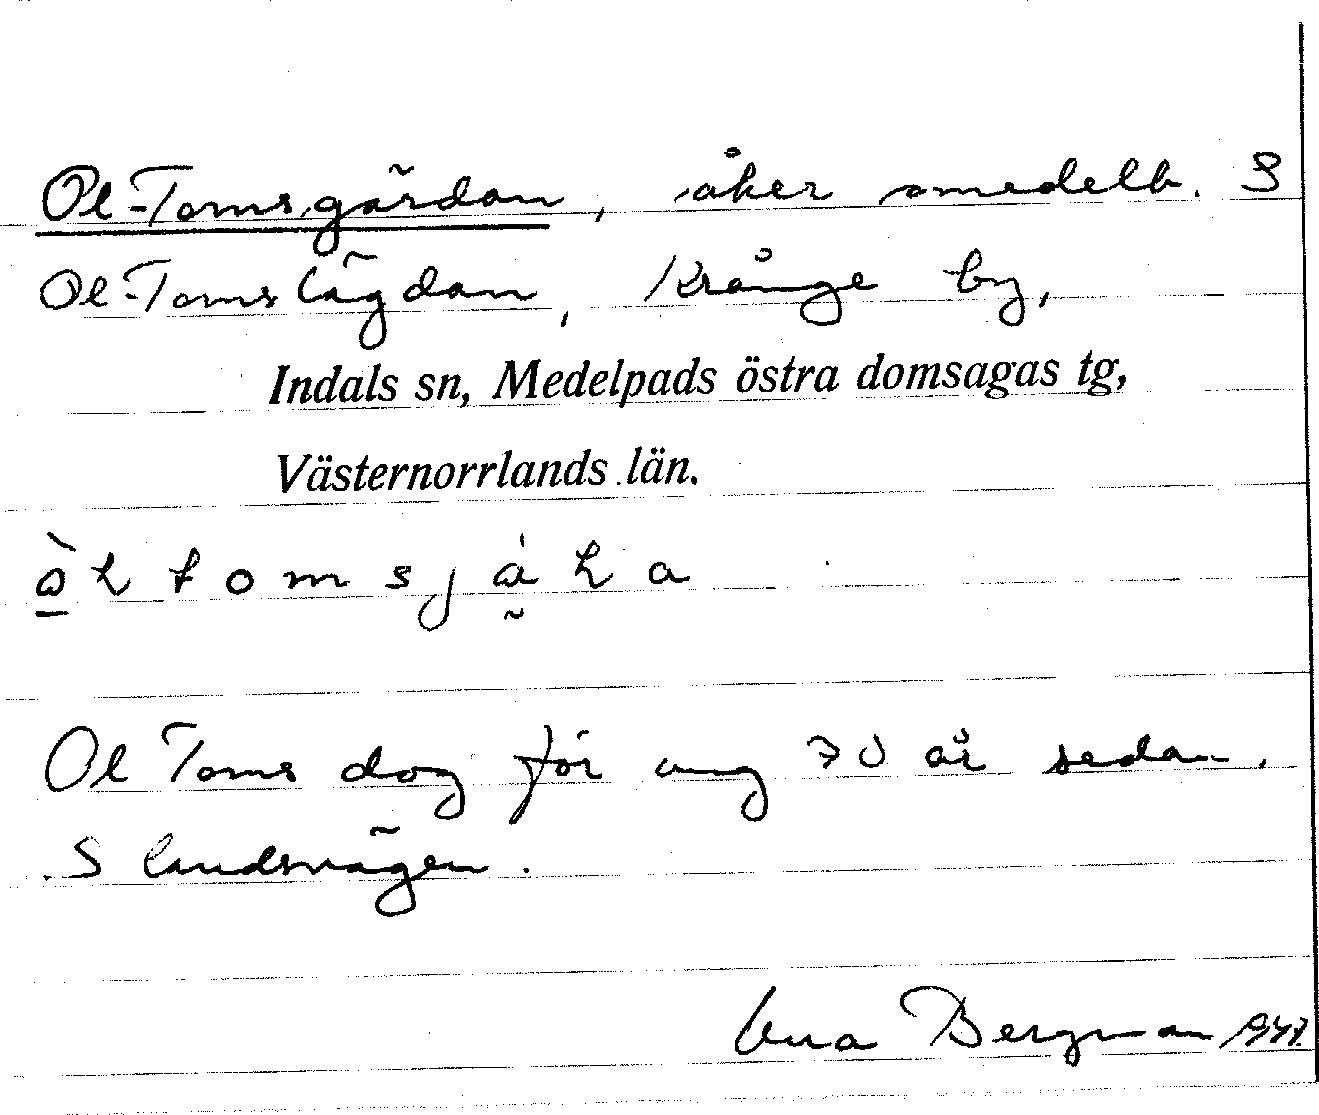 Ol-Tomsgärdan, åker omedelb. S
Ol-Tomslägdan, Krånge by,
Indals sn, Medelpads östra domsagas tg,
Västernorrlands län.
Ol Toms dog för ung 70 år sedan.
S landsvägen.
Bergman